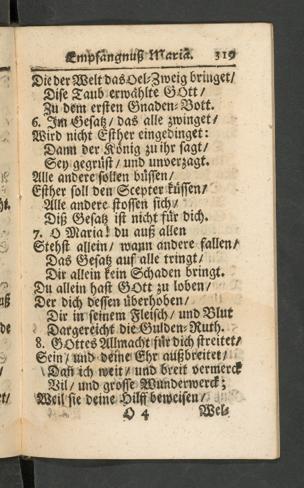 Empfängnuß Mariä. 319
Die der Welt das Oel-Zweig bringet/
Dise Taub erwählte GOtt/
Zu dem ersten Gnaden-Bott.
6. Im Gesatz/ das alle zwinget/
Wird nicht Esther eingedinget:
Dann der König zu ihr sagt/
Sey gegrüst/ und unverzagt.
Alle andere sollen büssen/
Esther soll den Scepter küssen/
Alle andere stossen sich/
Diß Gesatz ist nicht für dich.
7. O Maria! du auß allen
Stehst allein/ wann andere fallen/
Das Gesatz auf alle tringt/
Dir allein kein Schaden bringt.
Du allein hast GOtt zu loben/
Der dich dessen überhoben/
Dir in seinem Fleisch/ und Blut
Dargereicht die Gulden-Ruth.
8. GOttes Allmacht für dich streitet/
Sein/ und deine Ehr außbreitet/
Dan ich weit/ und breit vermerck
Vil/ und grosse Wunderwerck;
Weil sie deine Hilff beweisen/
O 4 Wel-